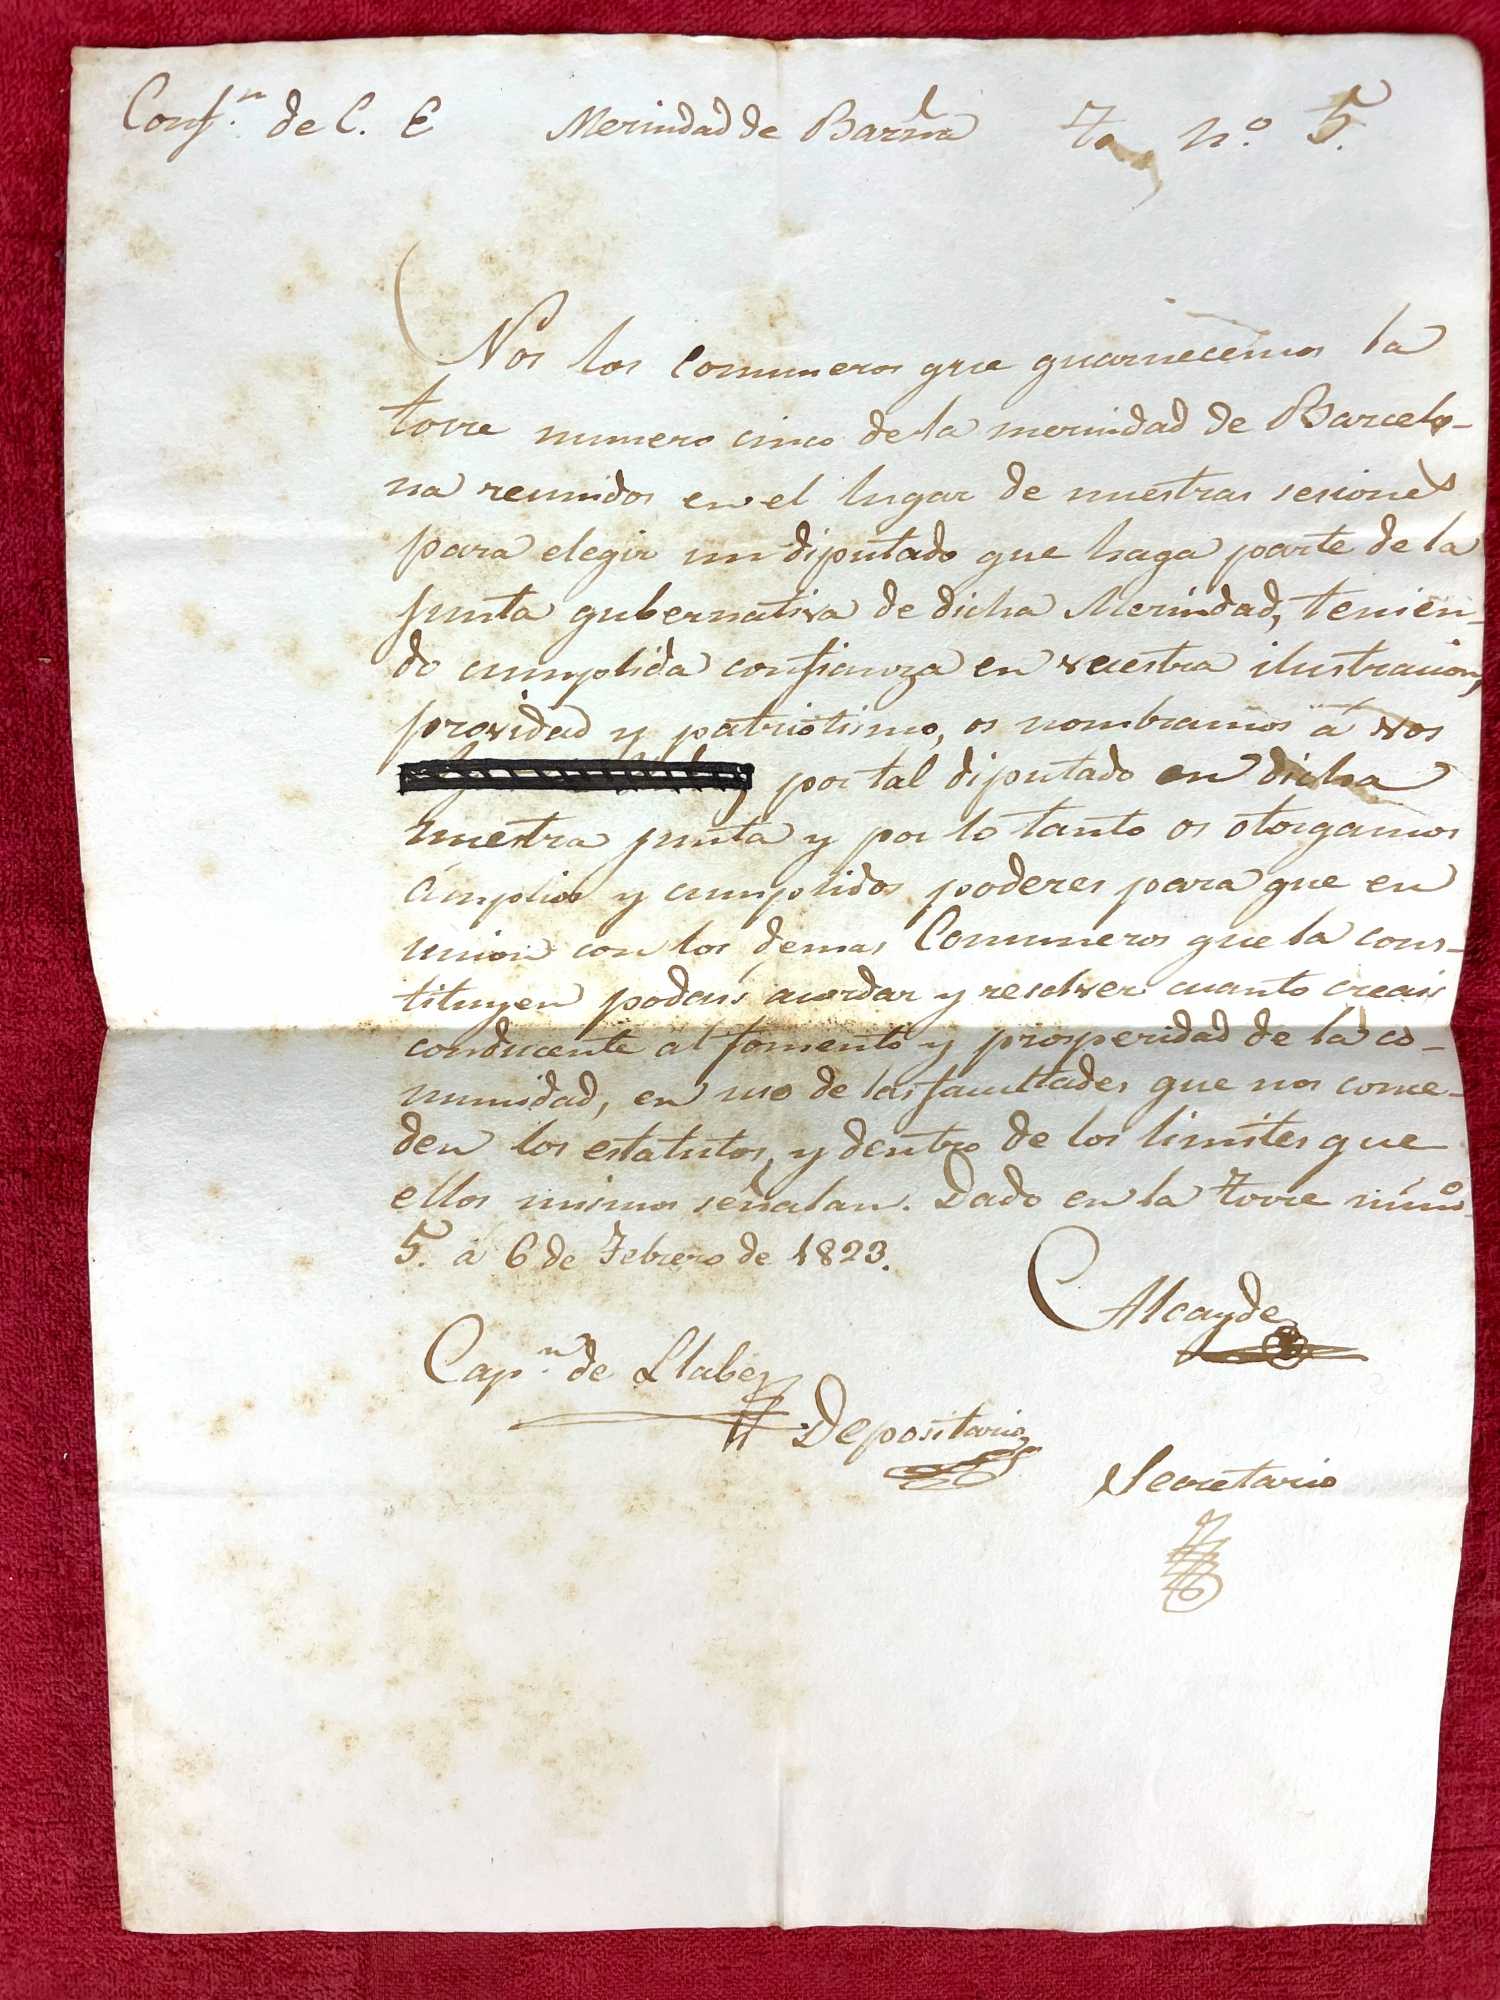 Conf.n de C. E Merindad de Barna Te nº. 5.
Nos los Comuneros que guarnecemos la
torre numero cinco de la merindad de Barcelo-
na reunidos en el lugar de nuestras sesiones
para elegir un diputado que haga parte de la
junta gubernativa de dicha Merindad, tenien-
do cumplida confianza en vuestra ilustracion,
providad y patriotismo, os nombramos á vos
por tal diputado en dicha
nuestra junta y por lo tanto os otorgamos
ámplios y cumplidos poderes para que en
union con los demas Comuneros que la cons-
tituyen podais acordar y resolver cuanto creais
conducente al fomento y prosperidad de la co-
munidad, en uso de las facultades que nos conce-
den los estatutos, y dentro de los limites que
ellos mismos señalan. Dado en la torre númo.
5. á 6 de Febrero de 1823.
Alcayde
Cap.n de Llabes
Depositario
Secretario